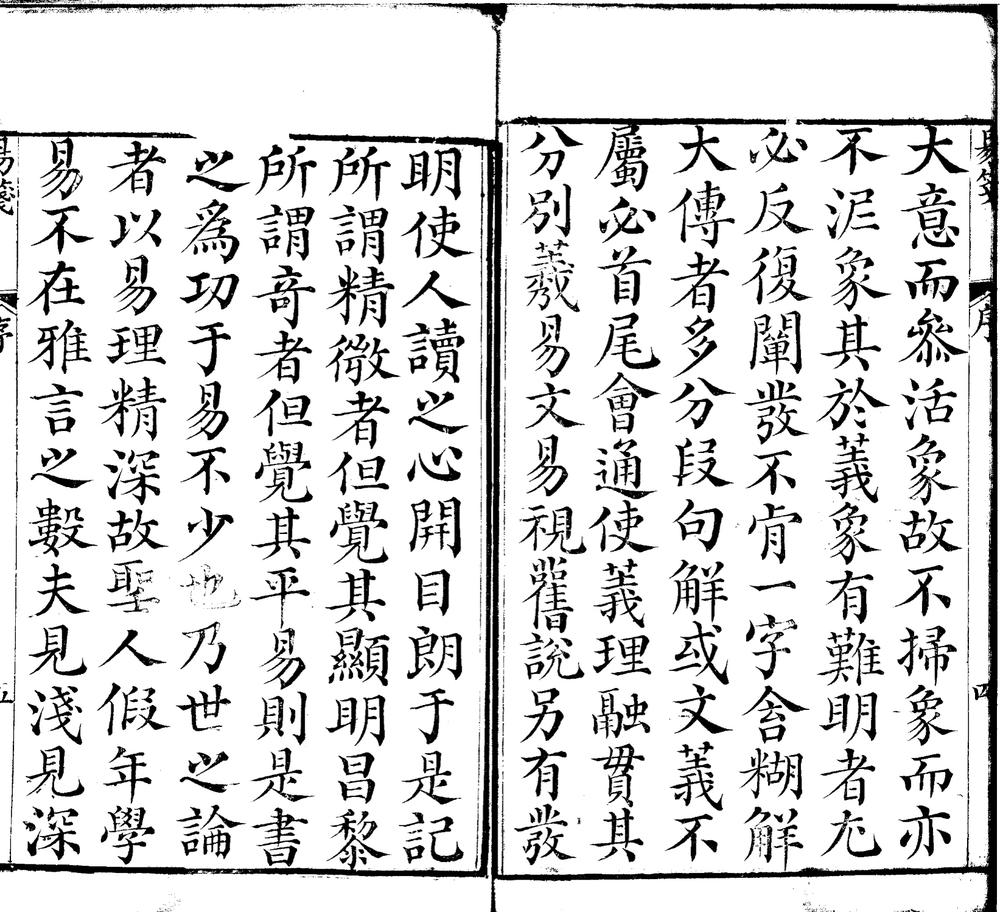 易箋
序
四
大意而叅活象故不掃象而亦
不泥象其於義象有難明者尤
必反復闡發不肯一字含糊解
大傳者多分段句解或文義不
屬必首尾會通使義理融貫其
分別羲易文易視舊說另有發
明使人讀之心開目朗于是記
所謂精微者但覺其顯明昌黎
所謂奇者但覺其平易則是書
之爲功于易不少也乃世之論
者以易理精深故聖人假年學
易不在雅言之數夫見淺見深
易箋
序
五